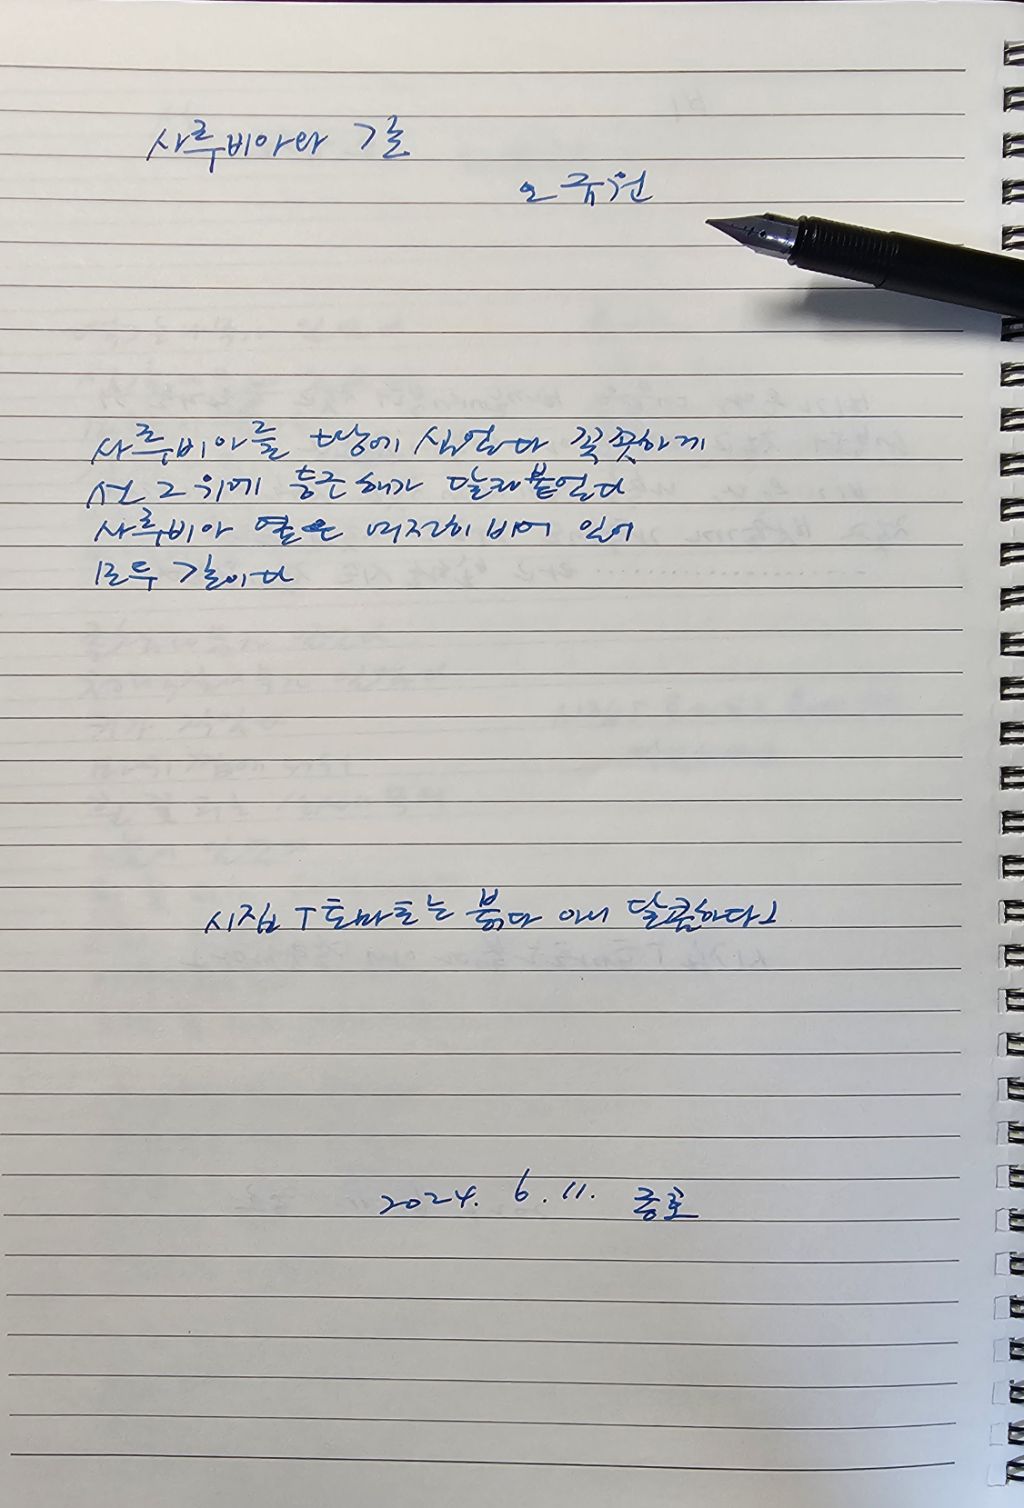 사루비아와 길
오규원
사루비아를 땅에 심었다 꼿꼿하게
선 그 위에 둥근 해가 달라붙었다
사루비아 옆은 여전히 비어 있어
모두 길이다
시집 『토마토는 붉다 아니 달콤하다』
2024. 6. 11. 종호